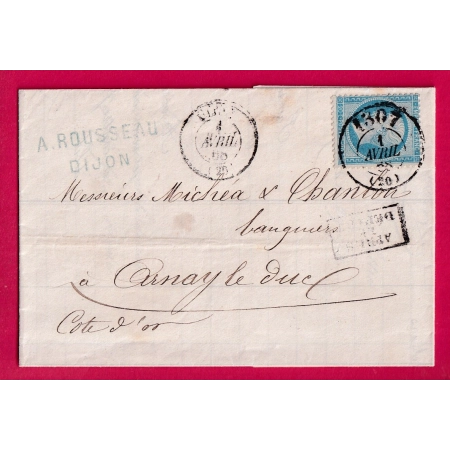 A. ROUSSEAU
DIJON
1
AVRIL
65
1307
1
AVRIL
(20)
Messieurs Michea & Chanton
banquiers
APRÈS
LE
DÉPART
à Arnay le duc
Cote d'or